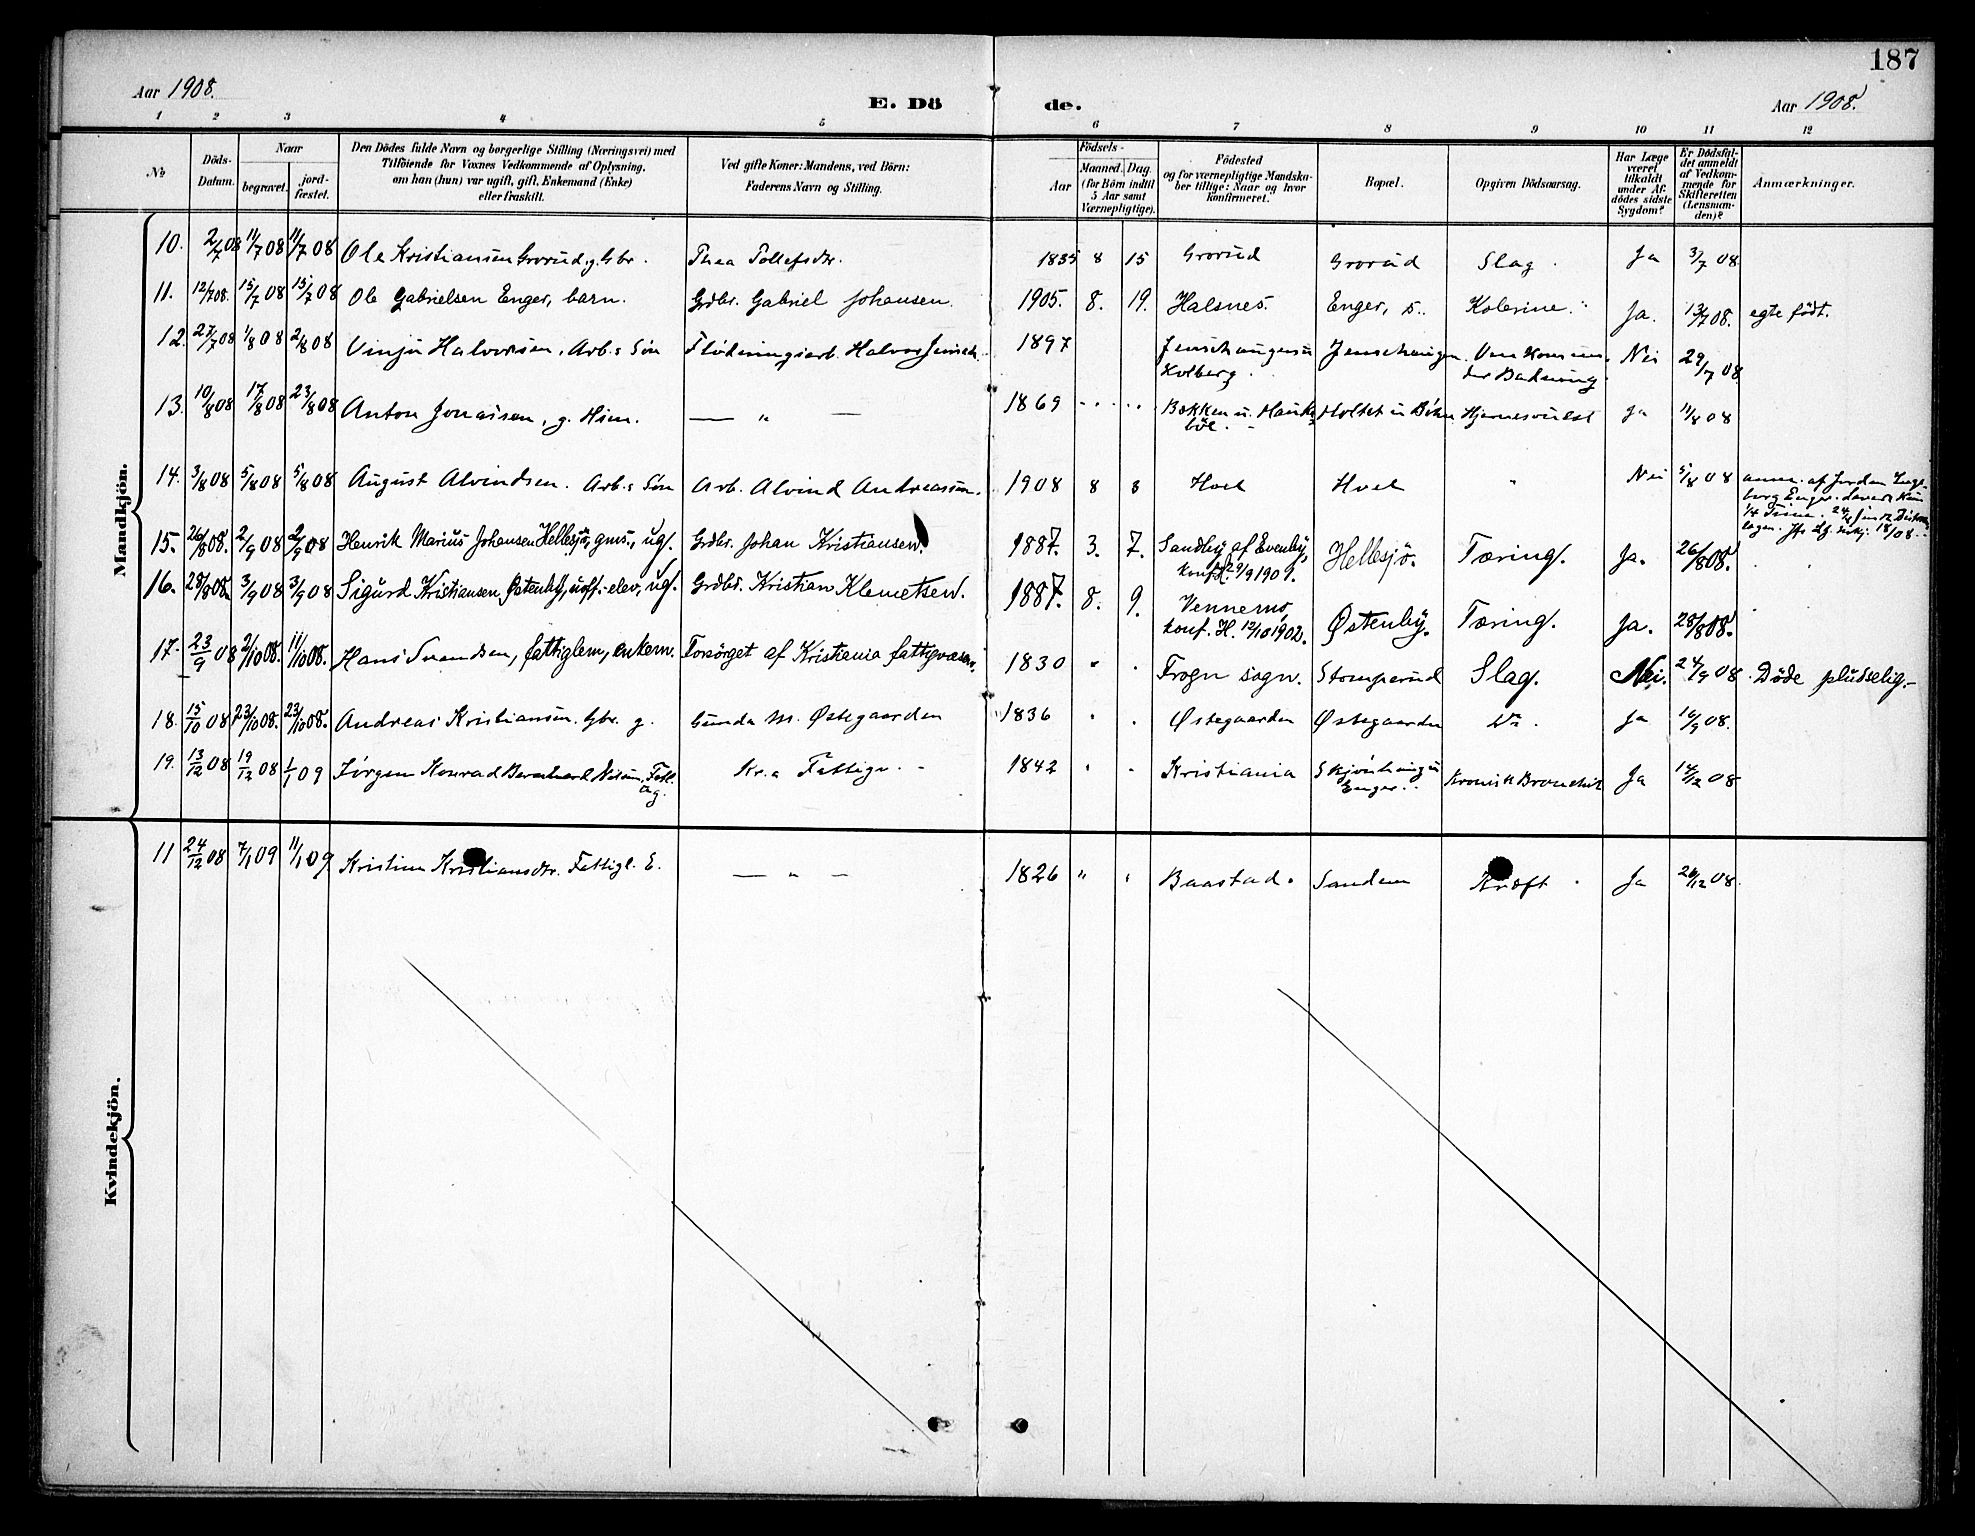 187
Aar 1908.
E. Döde.
Aar 1908.
1 2 3 4 5 6 7 8 9 10 11 12
No
Döds-Datum.
Naar
begravet.
jord-fæstet.
Den Dödes fulde Navn og borgerlige Stilling (Næringsvei) med
Tilföiende for Voxnes Vedkommende af Oplysning,
om han (hun) var ugift, gift, Enkemand (Enke)
eller fraskilt.
Ved gifte Koner: Mandens, ved Börn:
Faderens Navn og Stilling.
Födsels-
Aar
Maaned. Dag.
(for Börn indtil
5 Aar samt
Værnepligtige).
Födested
og for værnepligtige Mandska-
ber tillige: Naar og hvor
konfirmeret.
Bopæl.
Opgiven Dödsaarsag.
Har Læge
været
tilkaldt
under Af-
dödes sidste
Sygdom?
Er Dödsfal-
det anmeldt
af Vedkom-
mende for
Skifteretten
(Lensman-
den)?
Anmærkninger.
Mandkjön.
10. 2/7 08 11/7 08 11/7 08 Ole Kristiansen Grorud, g. Gbr. Thea Tollefsdtr. 1835 8 15 Grorud Grorud Slag. Ja 3/7 08
11. 12/7 08. 15/7 08 15/7 08 Ole Gabrielsen Enger, barn. Grdbr. Gabriel Johansen. 1905. 8. 19. Halsnes. Enger, s. Kolerine. Ja. 13/7 08. egte födt.
12. 27/7 08 1/8 08 2/8 08 Vinju Halvorsen. Arb.s Søn Flødningsarb. Halvor 1897 Kolberg. Nei 29/7 08
13. 10/8 08 17/8 08 23/8 08 Anton Jonassen, g. — " — 1869 Bakken u. Holtet u Hjernesvulst Ja 11/8 08
14. 3/8 08 5/8 08 5/8 08 August Alvindsen. Arb.s Søn Arb. Alvind Andreassen. 1908 8 3 Hoel Hoel " Nei 5/8 08 anm. af Jordm.
15. 26/8 08. 2/9 08 2/9 08 Henrik Marius Johansen Hellesjö, gms., ug. Grdbr. Johan Kristiansen. 1887. 3. 7. Sandby af Evenby, Hellesjö. Tæring. Ja. 26/8 08.
16. 28/8 08. 3/9 08 3/9 08 Sigurd Kristiansen Østenby, uoff.-elev, ug. Grdbr. Kristian Klemetsen. 1887. 8. 9. Vennerus,
konf. H. 12/10 1902. Østenby. Tæring. Ja. 28/8 08.
17. 23/9 08 2/10 08. 11/10 08. Hans Svendsen, fattiglem, enkem. Forsörget af Kristiania fattigvæsen. 1830 " . Frogn sogn. Stomperud Slag. Nei. 24/9 08. Döde pludselig.
18. 15/10 08 23/10 08. 23/10 08. Andreas Kristiansen. Gbr. g. Gunda M. Østegaarden 1836 Østegaarden Østegaarden Do. Ja 16/9 08.
19. 13/12 08 19/12 08 1/1 09 Jørgen Konrad Bernhard Nilsen, Fattl.
ug. Kr.a Fattigv. 1842 Kristiania
Enger. Kronisk Bronchit Ja 14/12 08
Kvindekjön.
11 24/12 08 7/1 09 11/1 09 Kristine Kristiansdtr. Fattigl. E. — " — 1826 " " Baastad. Sandem Kræft. Ja 26/12 08.